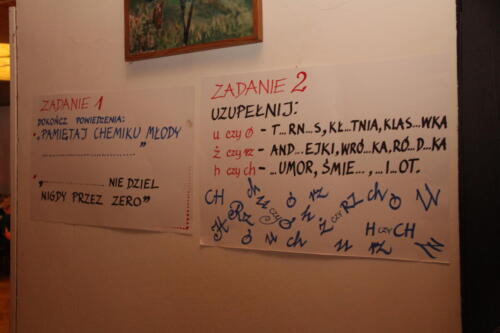 ZADANIE 1
DOKOŃCZ POWIEDZENIA:
„PAMIĘTAJ CHEMIKU MŁODY
........................”
„................ NIE DZIEL
NIGDY PRZEZ ZERO”
ZADANIE 2
UZUPEŁNIJ:
u czy ó - T...RN...S, KŁ...TNIA, KLAS...WKA
ż czy rz - AND...EJKI, WRÓ...KA, RÓ...D...KA
h czy ch - ...UMOR, ŚMIE..., ...I...OT.
CH u Ó rz CH U
H Rz u czy ó Ż czy RZ H czy CH
Ó u ch u rz